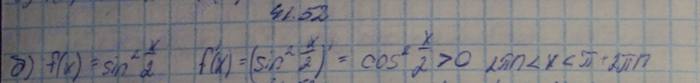 41.52
б) f(x) = sin² x/2 f'(x) = (sin² x/2)' = cos² x/2 > 0 2πn < x < π + 2πn